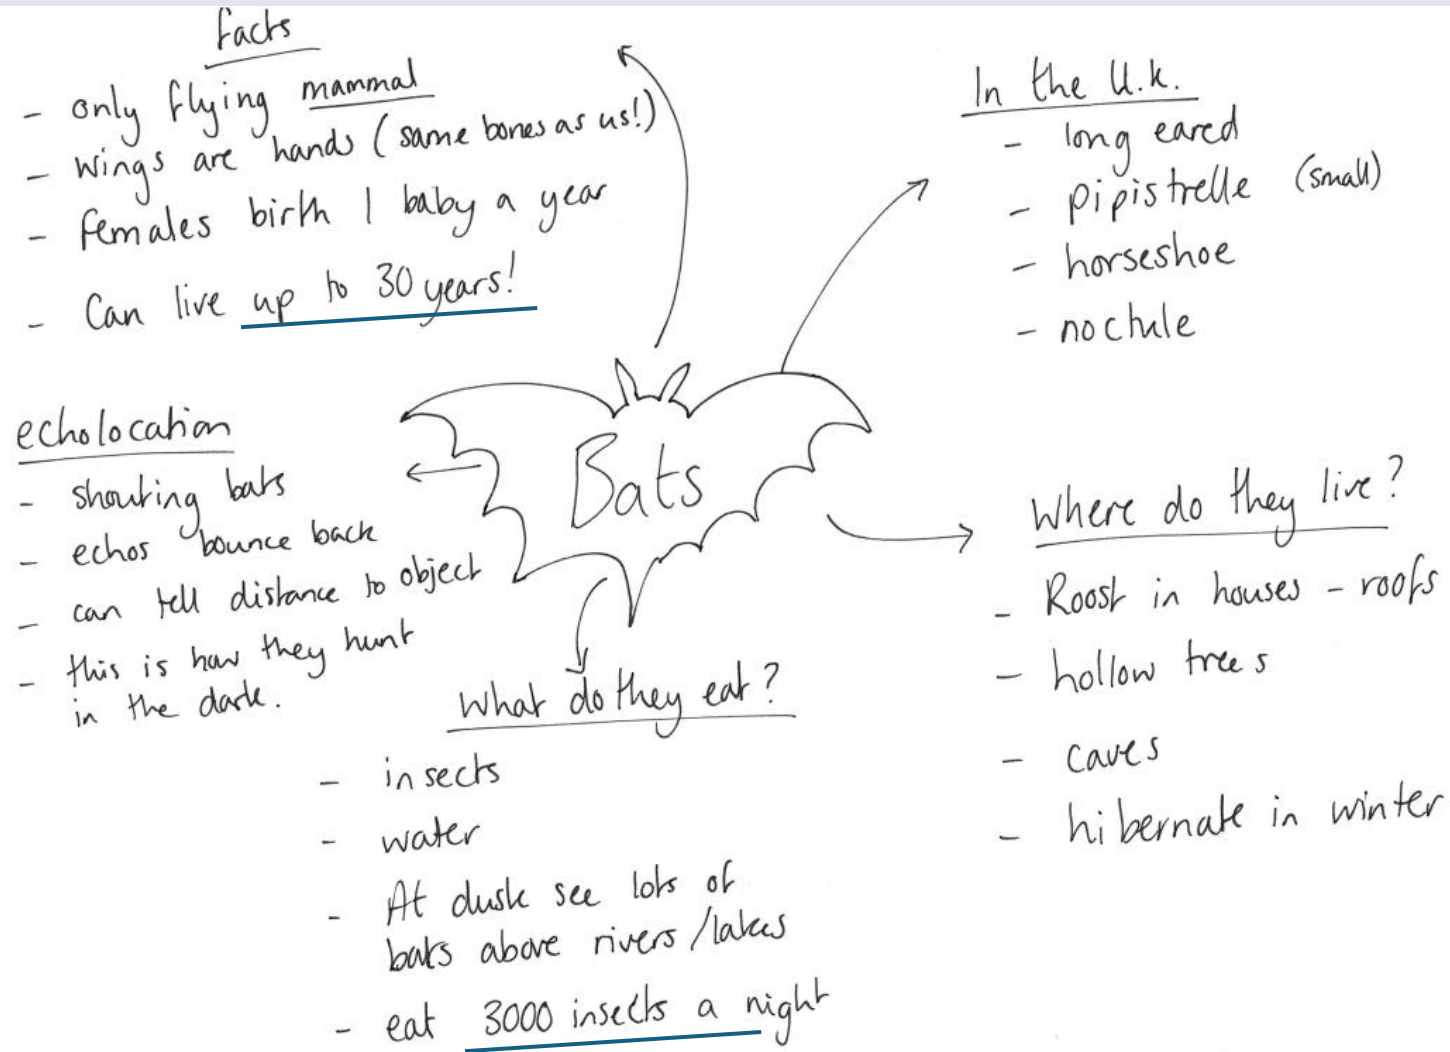 facts
- only flying mammal
- wings are hands (same bones as us!)
- females birth 1 baby a year
- Can live up to 30 years!
In the U.K.
- long eared
- pipistrelle (small)
- horseshoe
- noctule
echolocation
- shouting bats
- echos bounce back
- can tell distance to object
- this is how they hunt
in the dark.
Bats
Where do they live?
- Roost in houses - roofs
- hollow trees
- caves
- hibernate in winter
What do they eat?
- insects
- water
- At dusk see lots of
bats above rivers/lakes
- eat 3000 insects a night